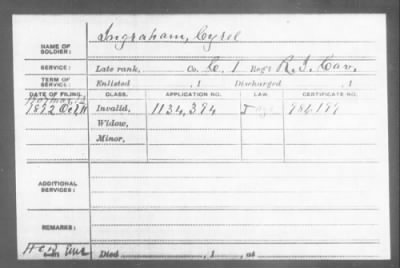 NAME OF SOLDIER: Ingraham, Cyrel
SERVICE: Late rank, Co. C, 1 Reg't R.I. Cav.
TERM OF SERVICE: Enlisted , 1 Discharged , 1
DATE OF FILING. CLASS. APPLICATION NO. LAW. CERTIFICATE NO.
1892 Oct 11 Invalid, 1134,394 986,199
Widow,
Minor,
ADDITIONAL SERVICES:
REMARKS:
Died , 1 , at